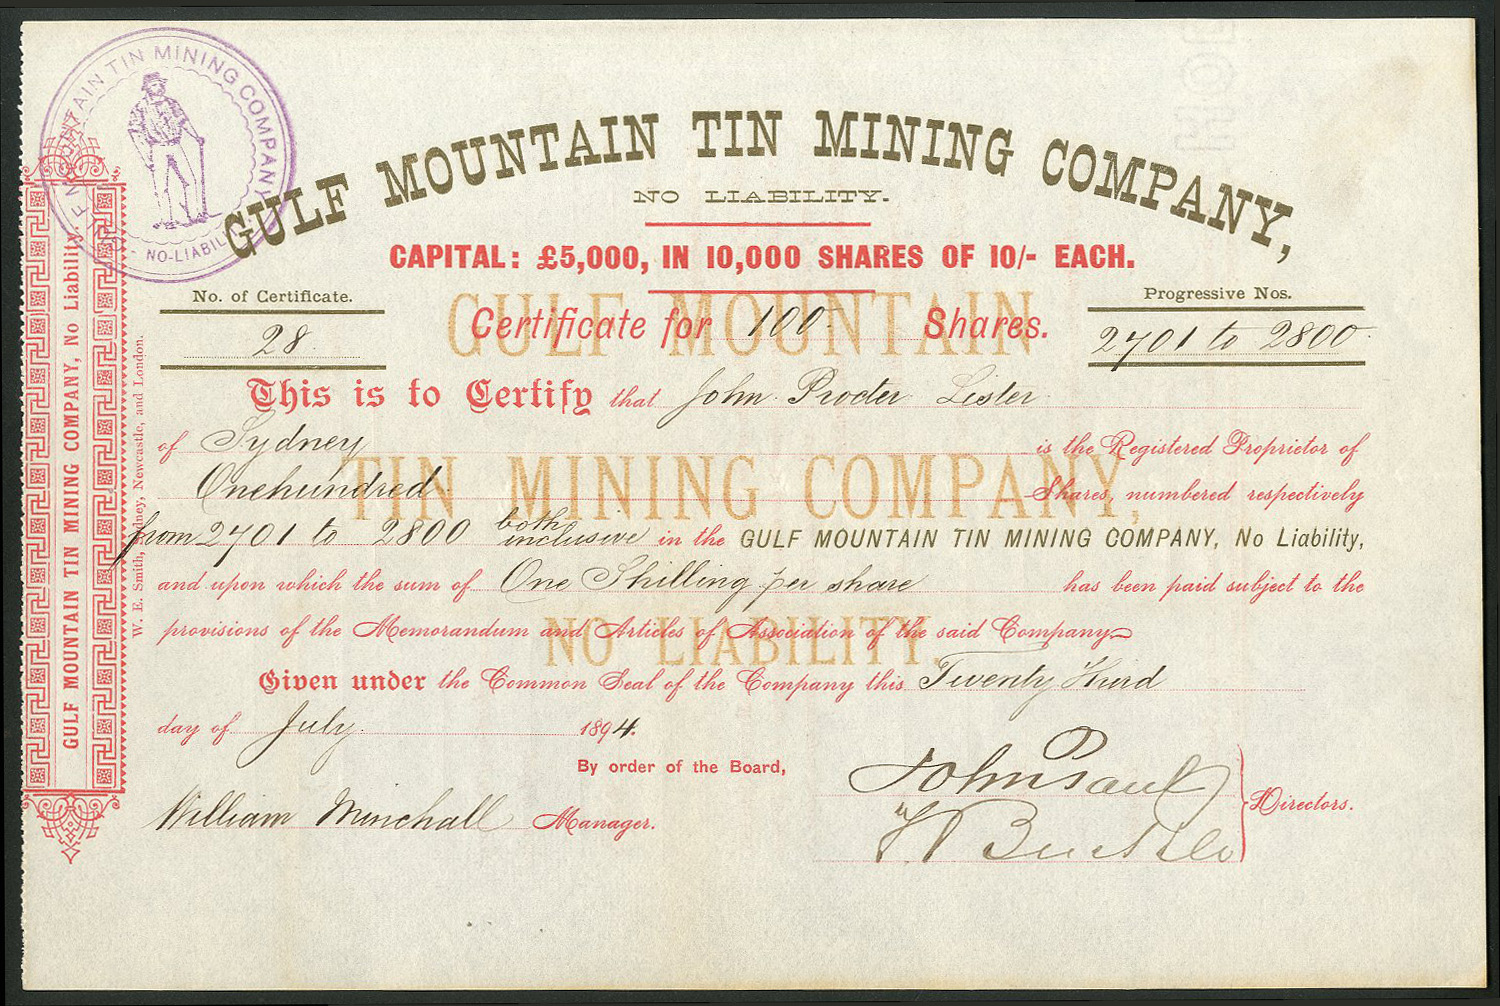 TAIN TIN MINING COMPANY
NO-LIABILI
GULF MOUNTAIN TIN MINING COMPANY,
NO LIABILITY.
CAPITAL: £5,000, IN 10,000 SHARES OF 10/- EACH.
No. of Certificate.
28
Certificate for 100 Shares.
Progressive Nos.
2701 to 2800
This is to Certify that John Procter Lister
of Sydney is the Registered Proprietor of
Onehundred Shares, numbered respectively
from 2701 to 2800 both inclusive in the GULF MOUNTAIN TIN MINING COMPANY, No Liability,
and upon which the sum of One Shilling per share has been paid subject to the
provisions of the Memorandum and Articles of Association of the said Company
Given under the Common Seal of the Company this Twenty third
day of July 1894.
By order of the Board,
William Minchall Manager.
John Paul
Directors.
GULF MOUNTAIN
TIN MINING COMPANY,
NO LIABILITY.
GULF MOUNTAIN TIN MINING COMPANY, No Liability.
W. E. Smith, Sydney, Newcastle, and London.